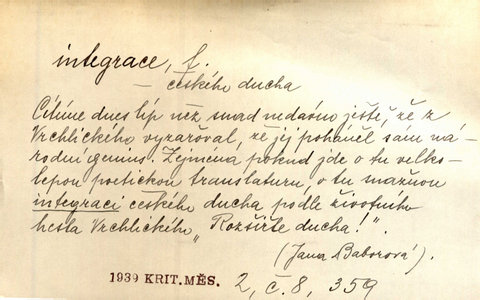 integrace, f.
– českého ducha
Cítíme dnes líp než snad nedávno ještě, že z
Vrchlického vyzařoval, že jej poháněl sám ná-
rodní genius. Zejména pokud jde o tu velko-
lepou poetickou translaturu, o tu mažnou
integraci českého ducha podle životního
hesla Vrchlického „Rozšiřte ducha!".
(Jana Baborová).
1939 KRIT. MĚS. 2, č. 8, 359